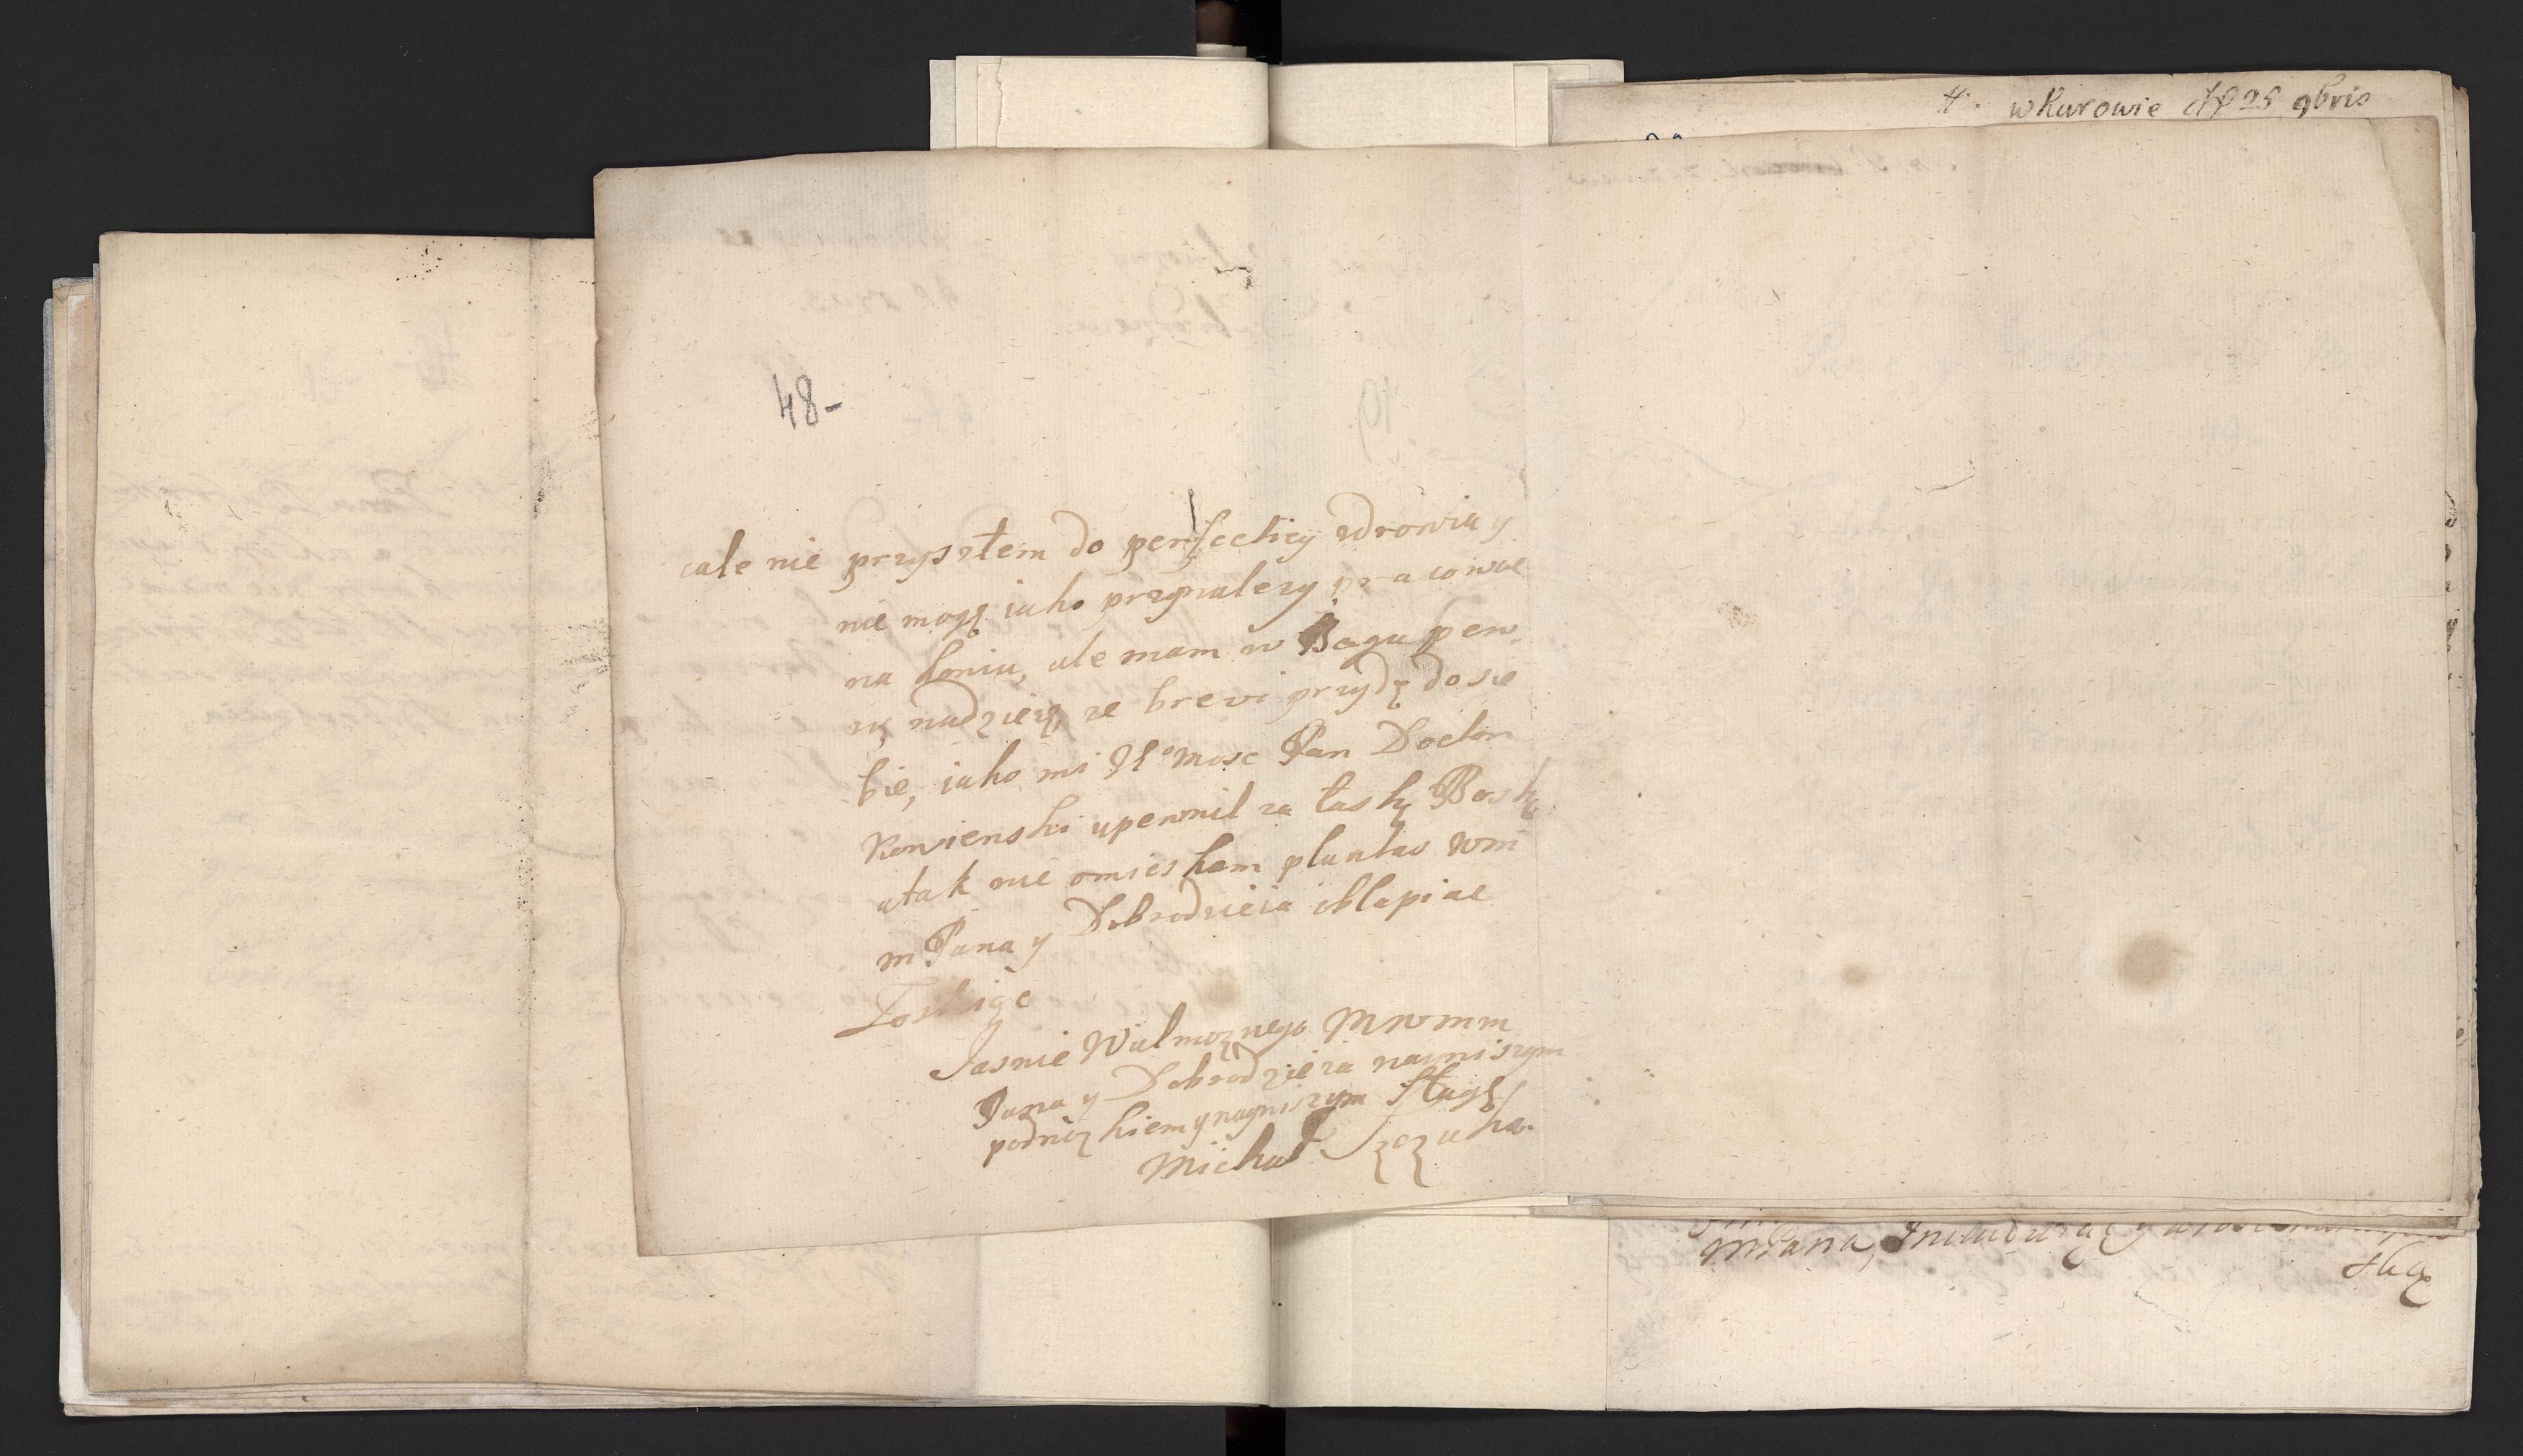 4. w Kurowie 25 9bris
48-
cale nie przyszłem do perfectiey zdrowia y
nie mogę iako przynalezy pracowac
na koniu, ale mam w Bogu pew
nę nadzieię, ze brevi przydę do sie
bie, iako mi Jeomosc Pan Doctor
Kowienski upewnil za łaskę Boskę
atak nie omieskam plantas Wm
m Pana y Dobrodzieia obłapiac
Jasnie Wielmoznego MWmm
Pana y Dobrodzieia nayniszym
podnozkiem y nayniszym sługą
Michał Szczuka
mPana,
sługą